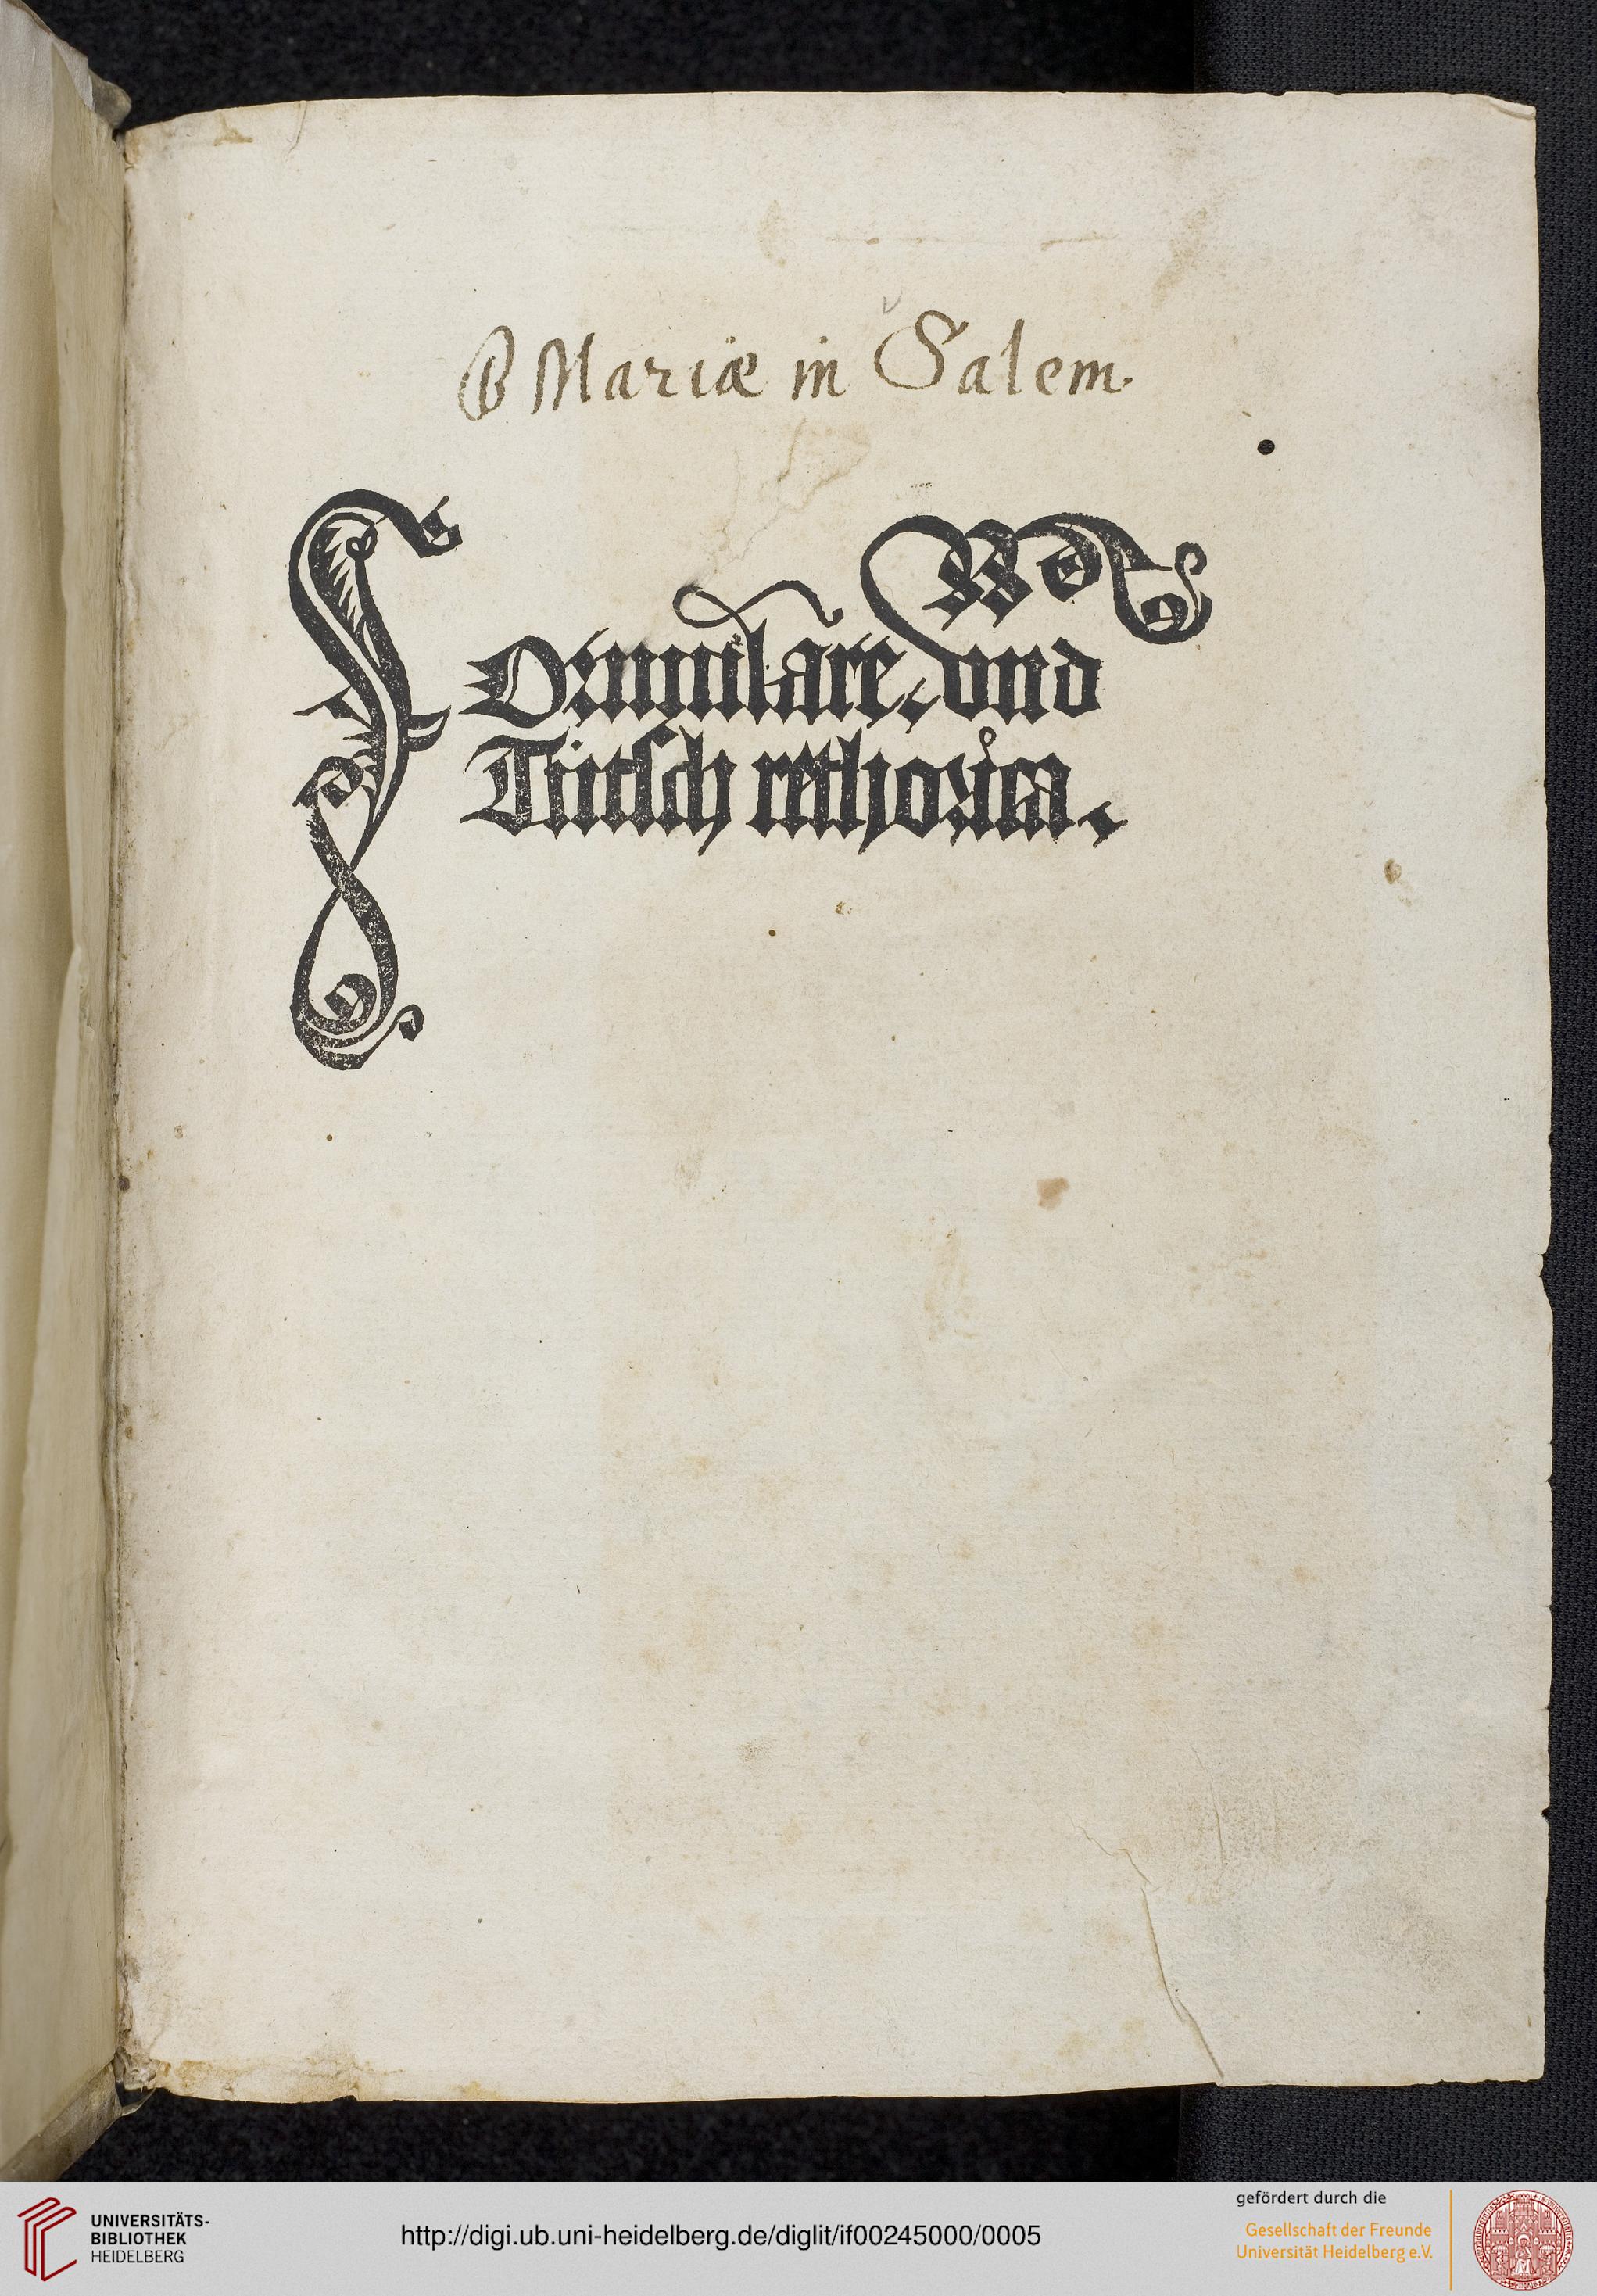 B Mariæ in Salem.
Formulare vnd
Tütsch rethorica.
UNIVERSITÄTS-
BIBLIOTHEK
HEIDELBERG
http://digi.ub.uni-heidelberg.de/diglit/if00245000/0005
gefördert durch die
Gesellschaft der Freunde
Universität Heidelberg e.V.